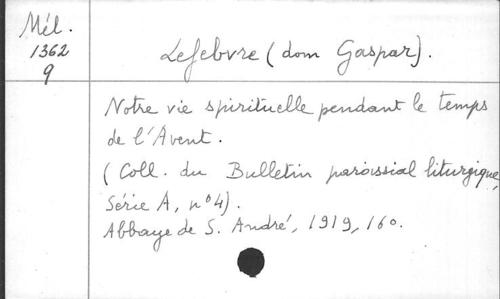 Mél.
1362
9
Lefebvre (dom Gaspar).
Notre vie spirituelle pendant le temps
de l'Avent.
(Coll. du Bulletin paroissial liturgique,
Série A, n°4).
Abbaye de S. André, 1919, 16o.